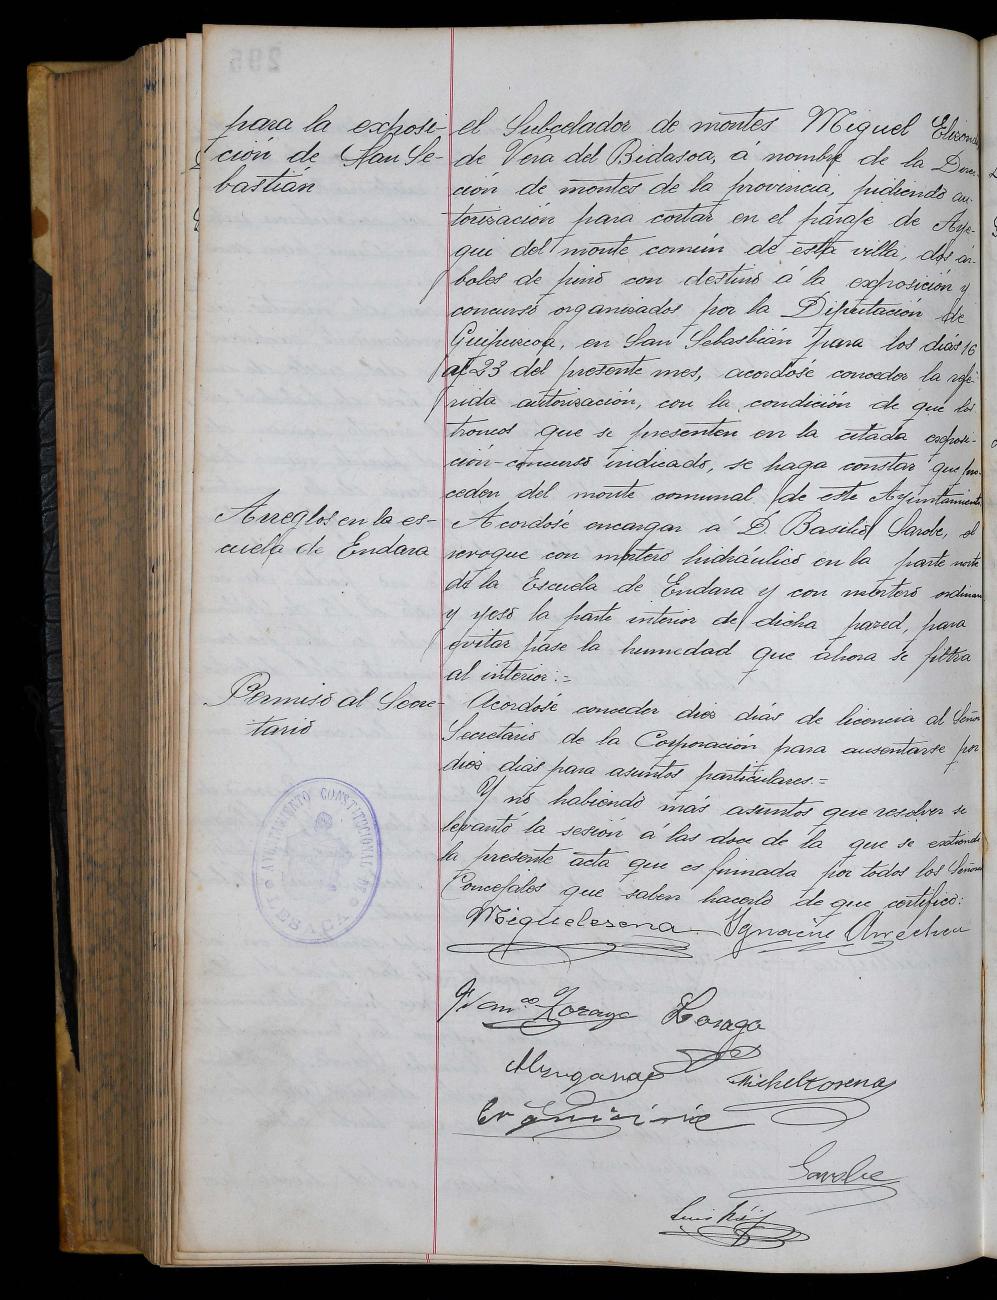 para la exposi-
ción de San Se-
bastián
el Subcelador de montes Miguel
de Vera del Bidasoa, á nombre de la Direc-
ción de montes de la provincia, pidiendo au-
torización para cortar en el paraje de Aye-
gui del monte común de esta villa, dos ár-
boles de pino con destino á la exposición y
concurso organizados por la Diputación de
Guipuzcoa, en San Sebastián para los días 16
al 23 del presente mes, acordóse conceder la refe-
rida autorización, con la condición de que los
troncos que se presenten en la citada exposi-
ción-concurso indicado, se haga constar que pro-
ceden del monte comunal de este Ayuntamiento
Arreglos en la es-
cuela de Endara
Acordóse encargar á D. Basilio Sarobe, el
revoque con mortero hidráulico en la parte norte
de la Escuela de Endara y con mortero ordinario
y yeso la parte interior de dicha pared, para
evitar pase la humedad que ahora se filtra
al interior:=
Permiso al Secre-
tario
Acordóse conceder diez días de licencia al Señor
Secretario de la Corporación para ausentarse por
diez días para asuntos particulares.=
Y no habiendo más asuntos que resolver se
levantó la sesión á las doce de la que se extiende
la presente acta que es firmada por todos los Señores
Concejales que saben hacerlo de que certifico:
AYUNTAMIENTO CONSTITUCIONAL DE
LESACA
Miguelerena Ignacio Arrechea
Fran.co
Micheltorena
Sarobe
Luis